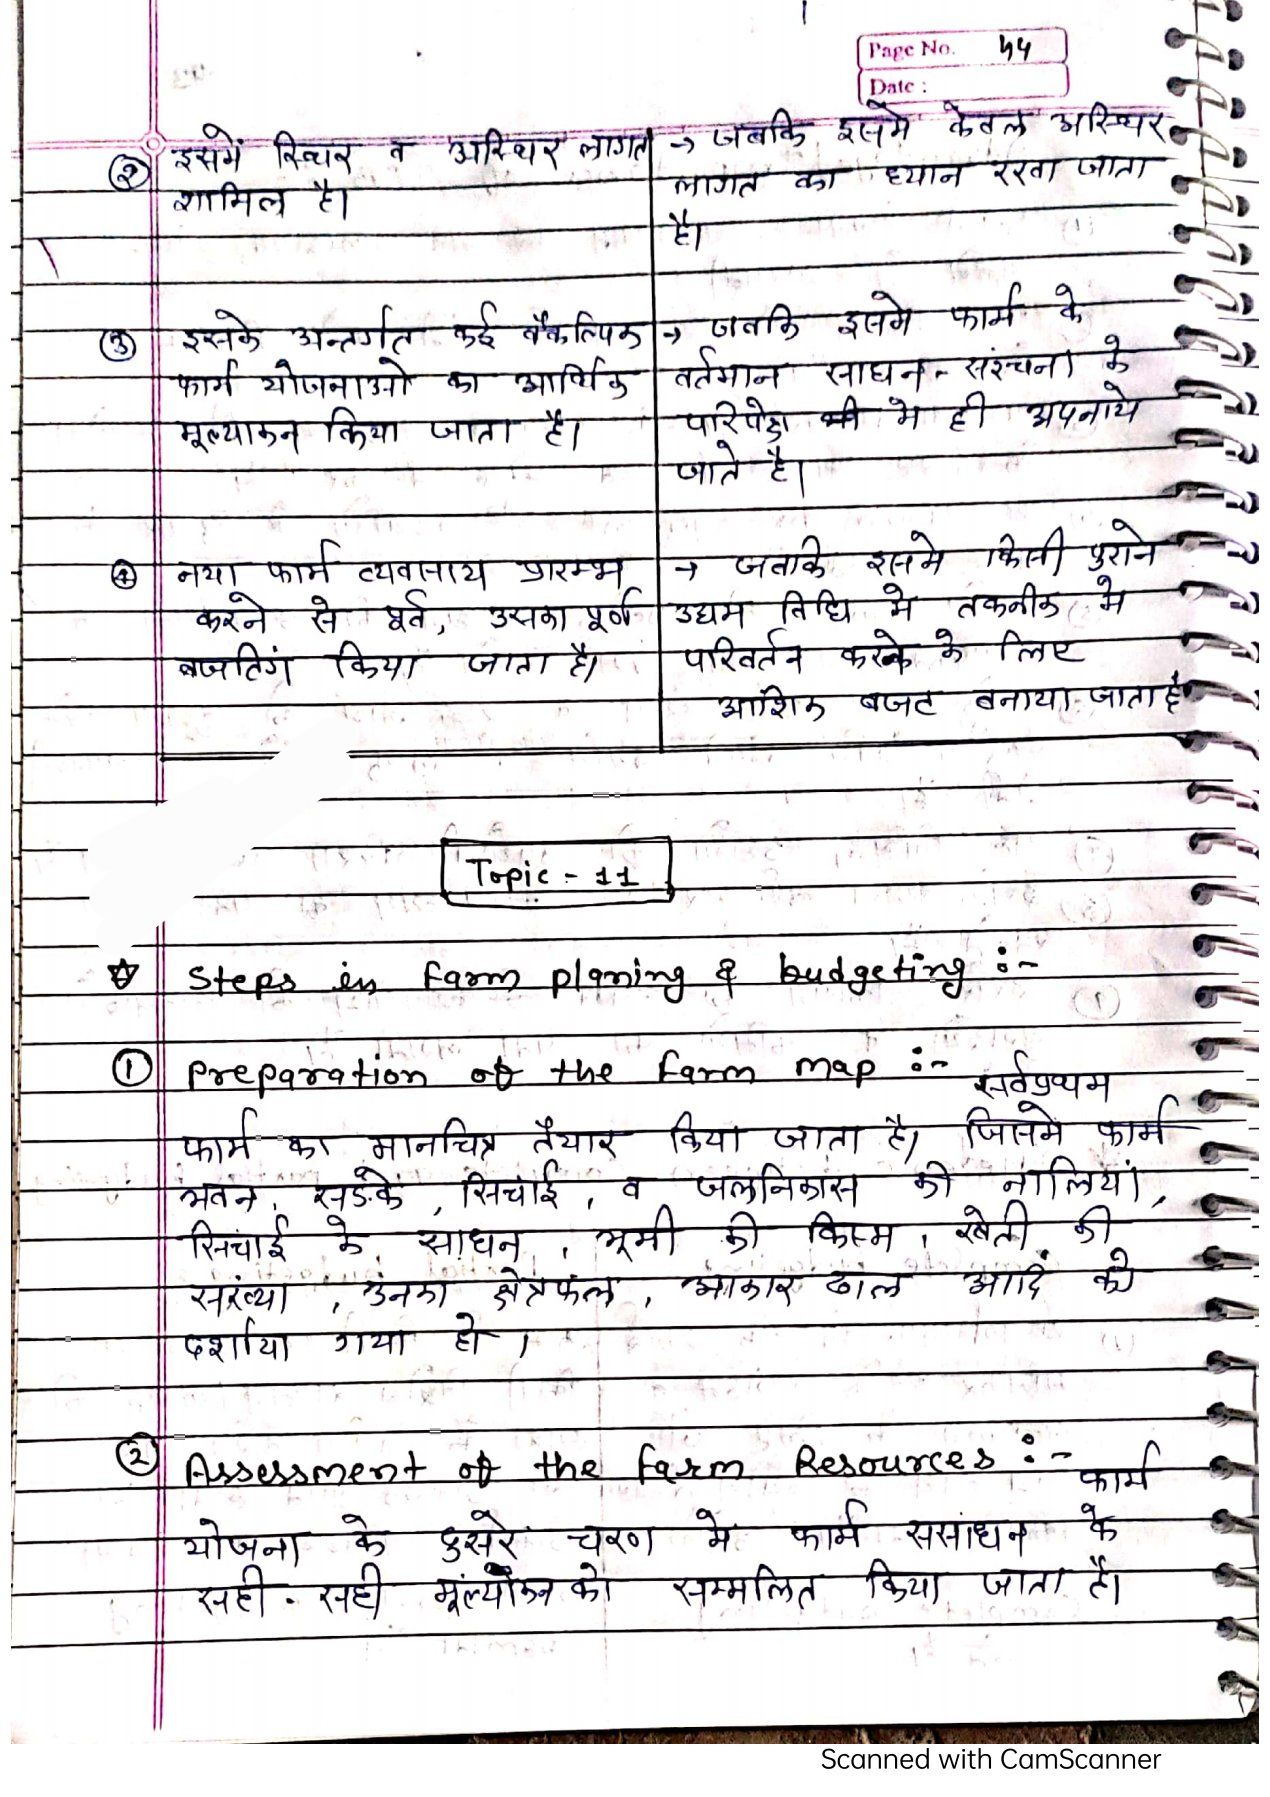 Page No. 54
Date :
② इसमें स्थिर व अस्थिर लागत
शामिल है।
→ जबकि इसमे केवल अस्थिर
लागत का ध्यान रखा जाता
है।
③ इसके अन्तर्गत कई वैकल्पिक
फार्म योजनाओ का आर्थिक
मूल्याकन किया जाता है।
→ जबकि इसमे फार्म के
वर्तमान साधन - संरचना के
परिपेक्ष मे ही अपनाये
जाते है।
④ नया फार्म व्यवसाय प्रारम्भ
करने से पूर्व, उसका पूर्ण
बजटिगं किया जाता है।
→ जबकि इसमे किसी पुराने
उद्यम विधि मे तकनीक मे
परिवर्तन करके के लिए
आशिक बजट बनाया जाता है
Topic - 11
☆ Steps in farm planing & budgeting :-
① Preparation of the farm map :- सर्वप्रथम
फार्म का मानचित्र तैयार किया जाता है। जिसमे फार्म
भवन, सडके, सिचाई, व जलनिकास की नालियां,
सिचाई के साधन, भूमी की किस्म, खेती की
संख्या, उनका क्षेत्रफल, आकार ढाल आदि को
दर्शाया गया हो,
② Assessment of the farm Resources :- फार्म
योजना के दुसरे चरण मे फार्म ससांधन के
सही - सही मूल्यांकन को सम्मलित किया जाता है।
Scanned with CamScanner